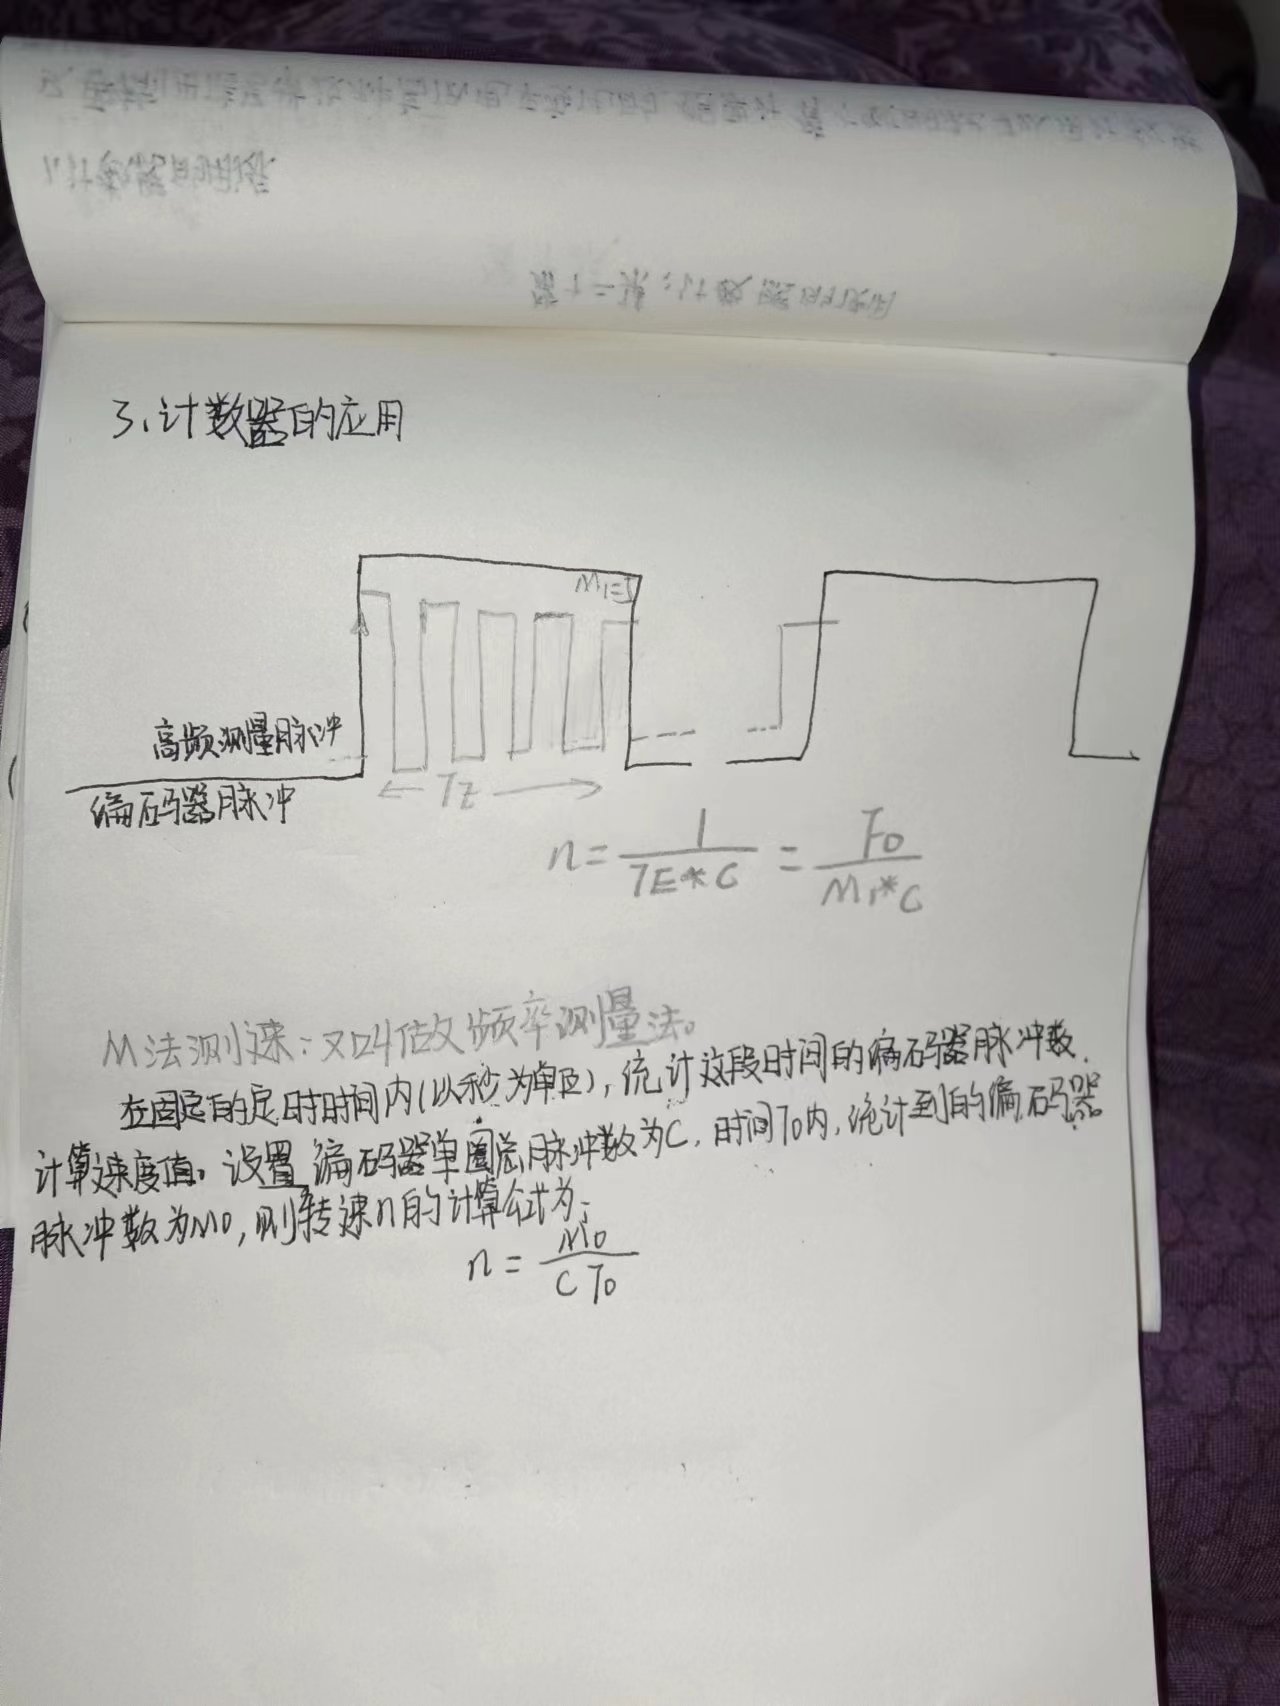 3、计数器的应用
M1=5
高频测量脉冲
编码器脉冲
TE
n = 1/(TE*C) = F0/(M1*C)
M法测速：又叫做频率测量法。
在固定的定时时间内(以秒为单位)，统计这段时间的编码器脉冲数，
计算速度值。设置编码器单圈总脉冲数为C，时间T0内，统计到的编码器
脉冲数为M0，则转速n的计算公式为：
n = M0/(C T0)